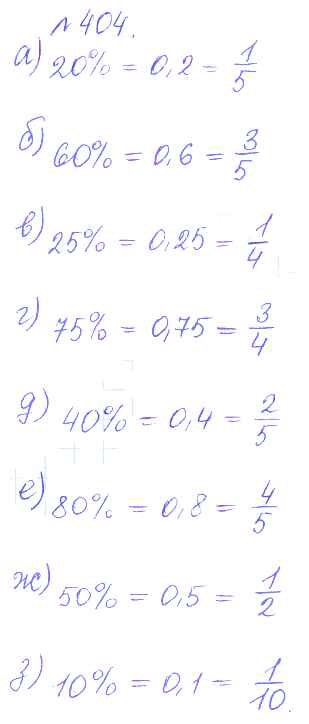 № 404.
а) 20% = 0,2 = 1/5
б) 60% = 0,6 = 3/5
в) 25% = 0,25 = 1/4
г) 75% = 0,75 = 3/4
д) 40% = 0,4 = 2/5
е) 80% = 0,8 = 4/5
ж) 50% = 0,5 = 1/2
з) 10% = 0,1 = 1/10.